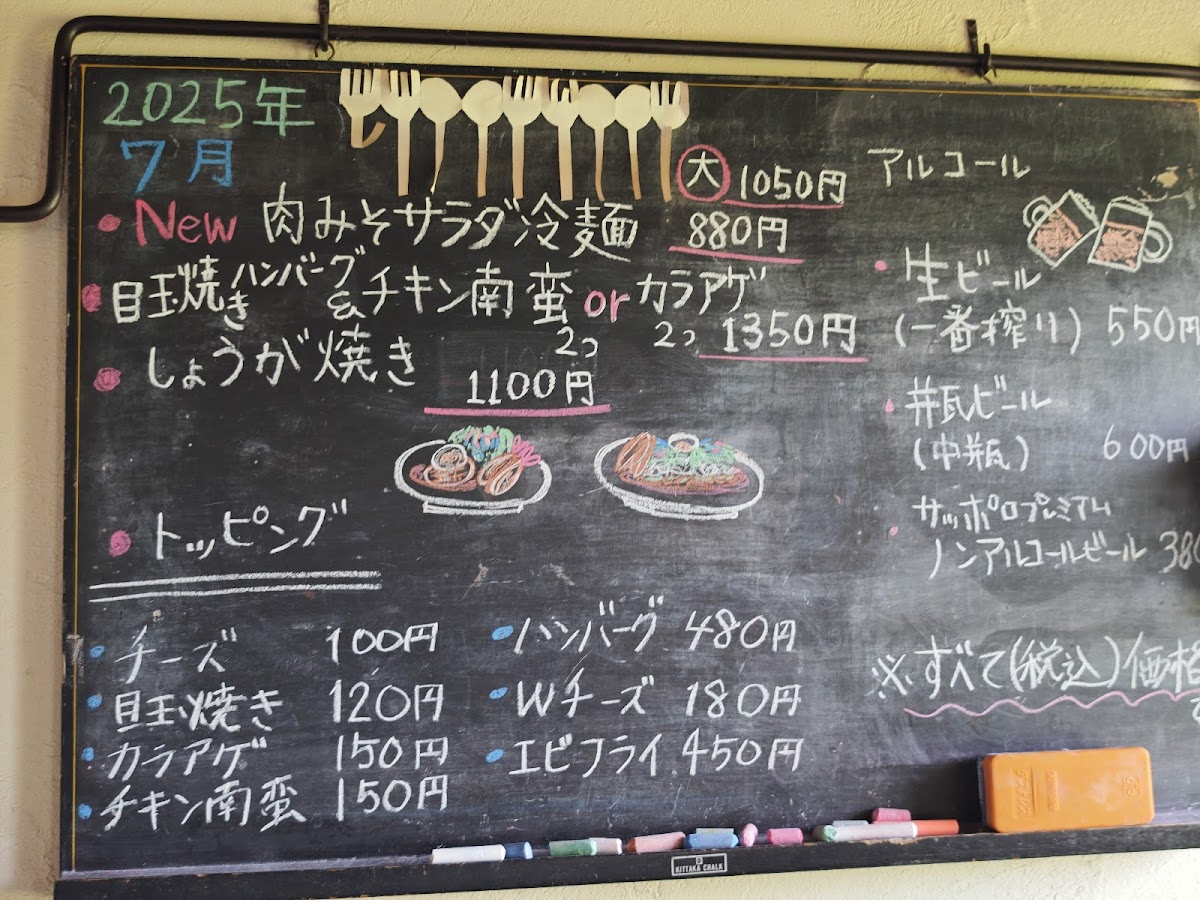 2025年
7月
大 1050円
New 肉みそサラダ冷麺 880円
目玉焼き ハンバーグ & チキン南蛮 2コ or カラアゲ 2コ 1350円
しょうが焼き 1100円
トッピング
チーズ 100円
目玉焼き 120円
カラアゲ 150円
チキン南蛮 150円
ハンバーグ 480円
Wチーズ 180円
エビフライ 450円
アルコール
生ビール
(一番搾り) 550円
瓶ビール
(中瓶) 600円
サッポロプレミアム
ノンアルコールビール 380
※すべて(税込)価格
KITTAKA CHALK